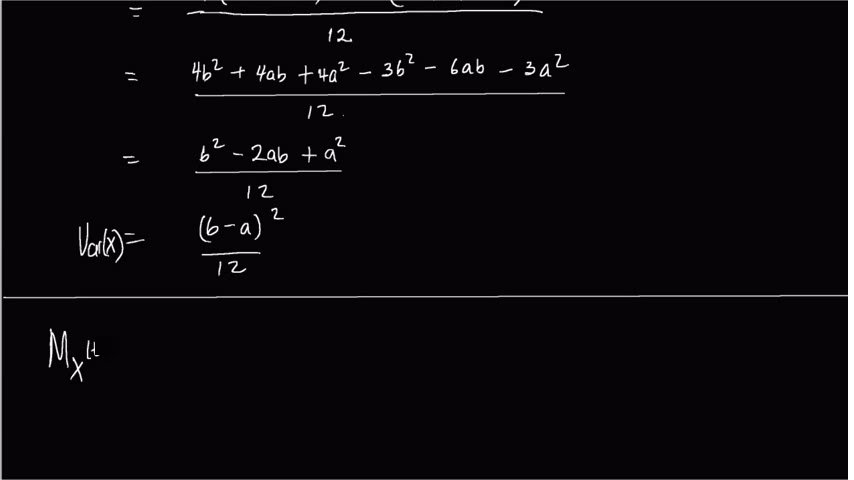 =
12
= 4b² + 4ab + 4a² - 3b² - 6ab - 3a²
12.
= b² - 2ab + a²
12
Var(x)= (b-a)²
12
M_X(t